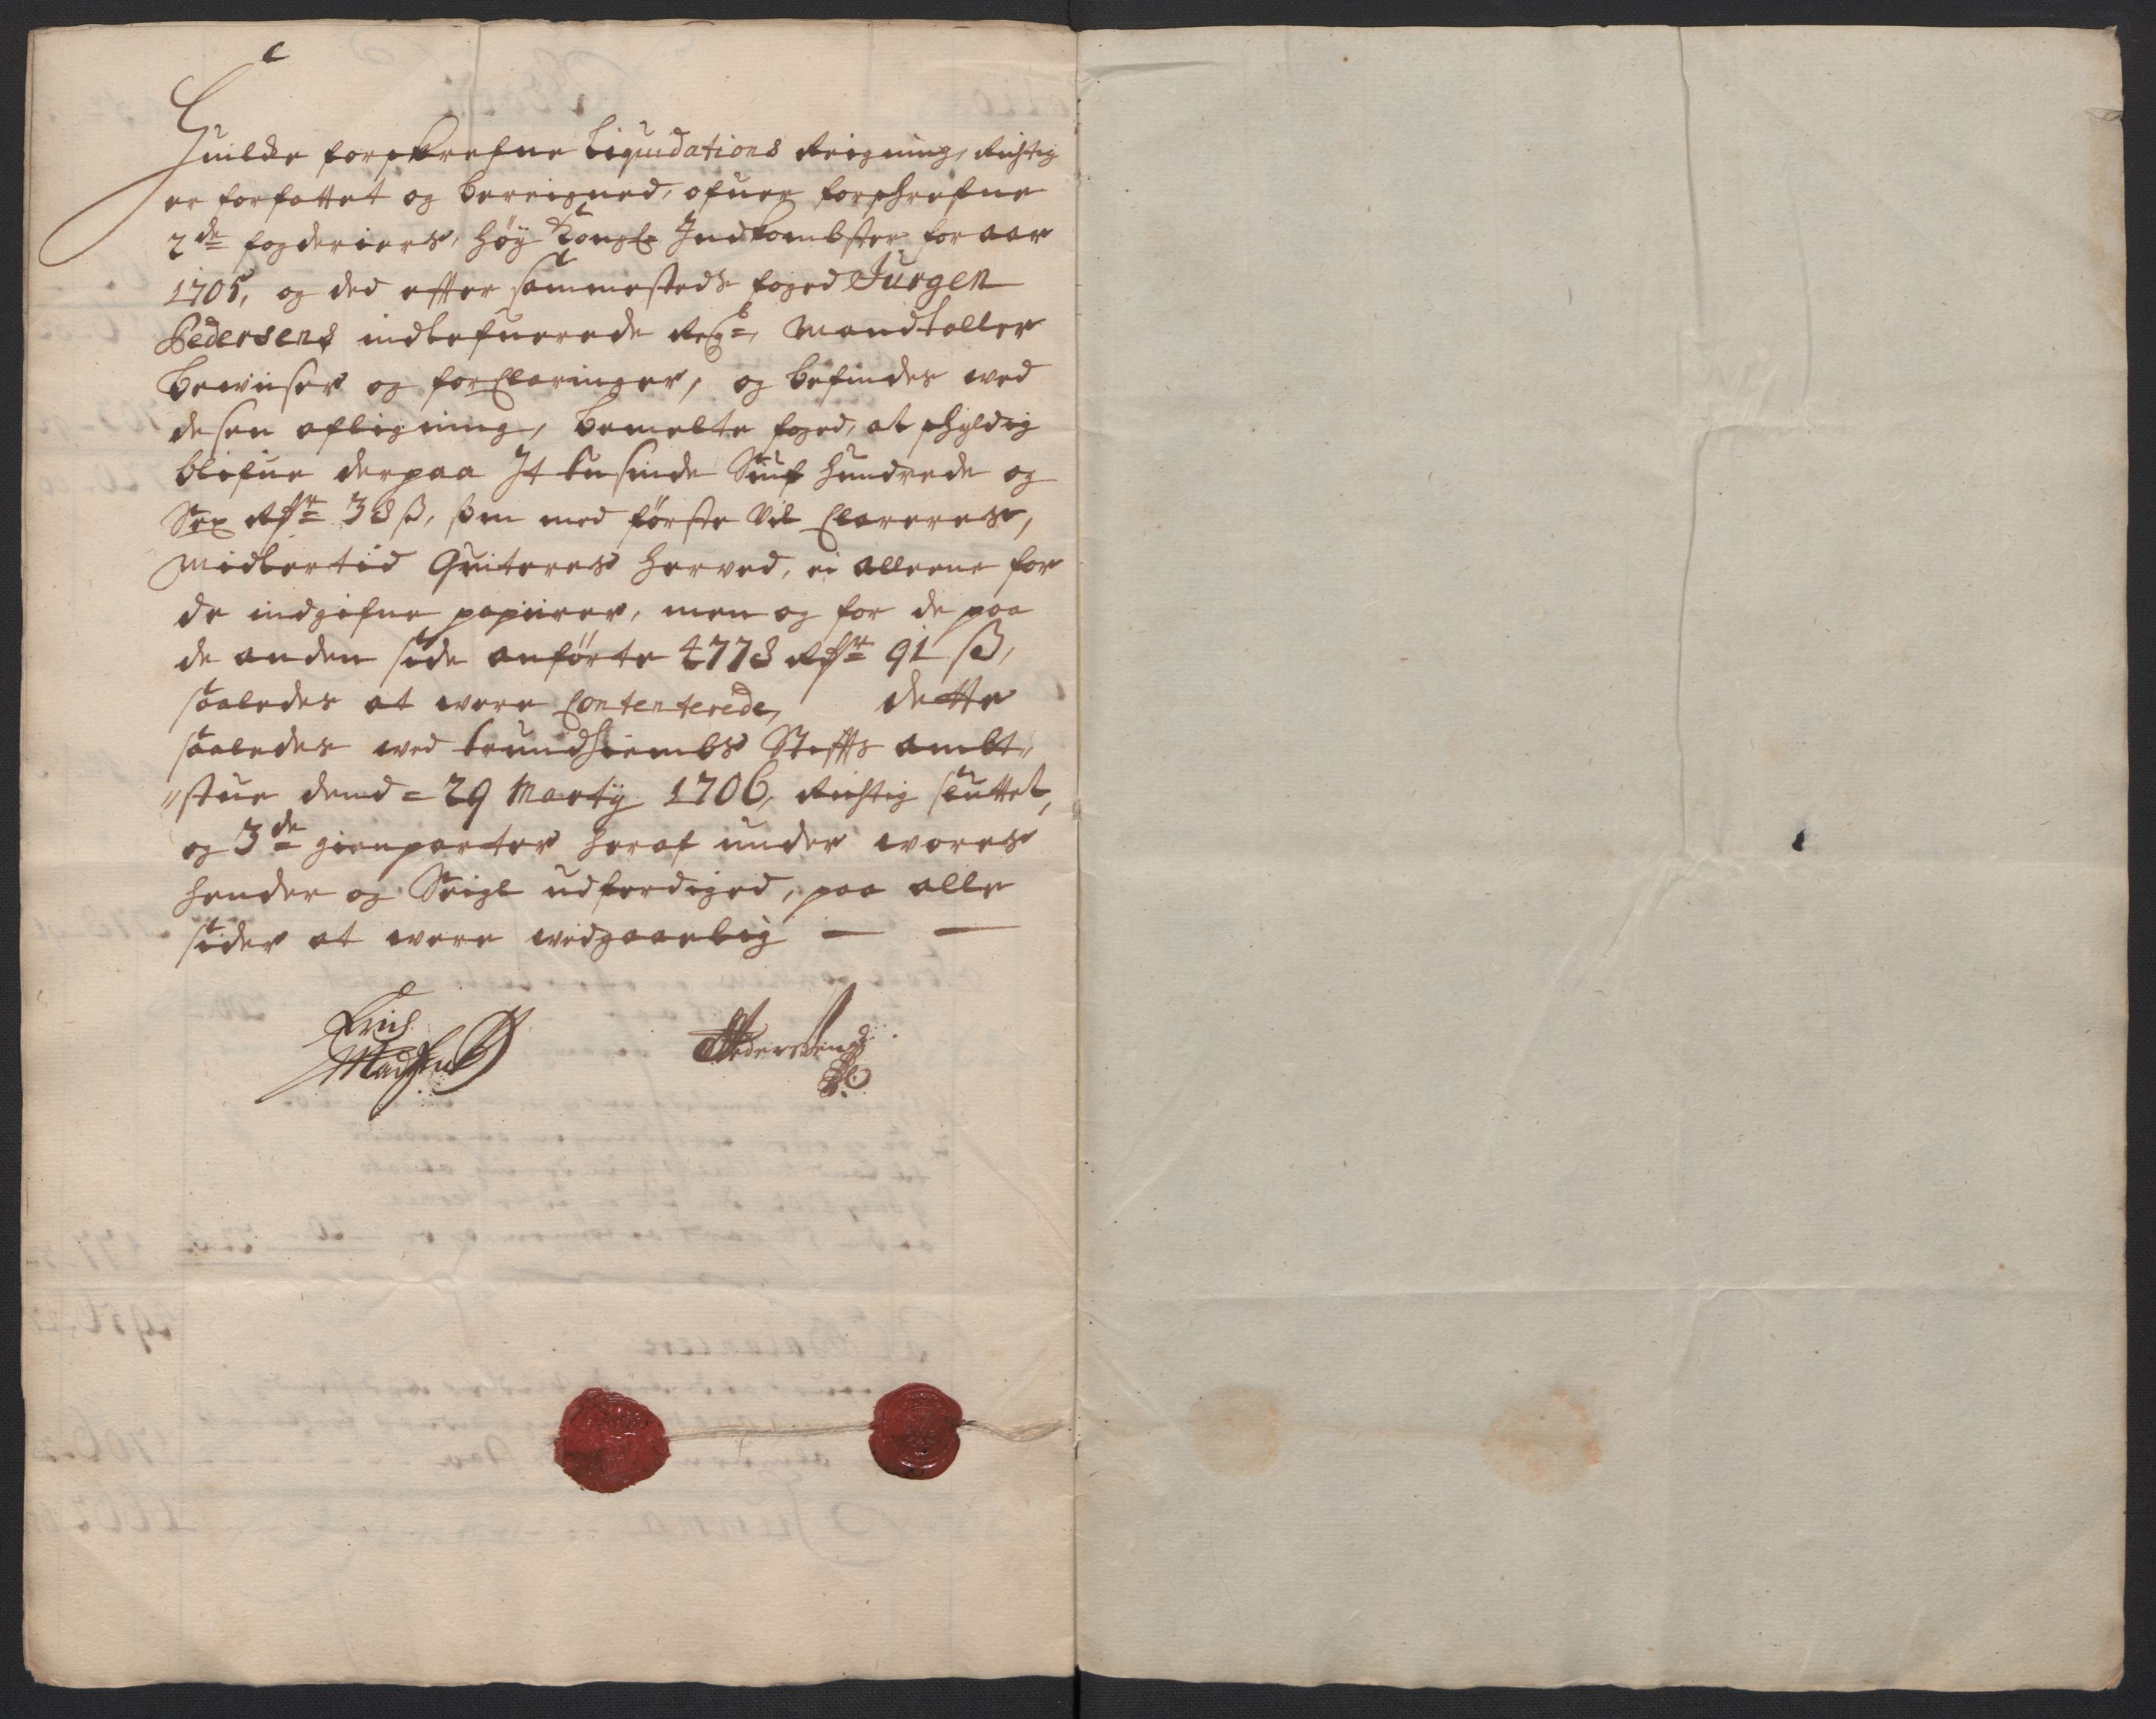 Huilche forskrefne Liquidations Reigning, Richtig
er forfattet og bereigned, ofuer forschrefne
2de fogderiers, höy Kongl: Indkombster for aar
1705, og ded effter sammesteds foged Jurgen
Pedersens indlefuerede Regs: Mandtaller
bewiiser og forClaringer, og befindes wed
desen afligning, bemelte foged, at schyldig
blifue derpaa It tusinde Siuf hundrede og
Sex Rdr 38 ß, som med förste vil Clareres,
midlertid Quiteres herved, ei alleene for
de indgifne papiirer, men og for de paa
de anden side anförte 4778 Rdr 91 ß,
saaledes at were Contenterede, dette
saaledes wed trundhiembs Stiffts ambt„
„stue dend = 29 Martij 1706, Richtig sluttet,
og 3de gienparter heraf under wores
hender og Seigl udferdiged, paa alle
sider at were wedgaaelig — —
Erich
Madsen